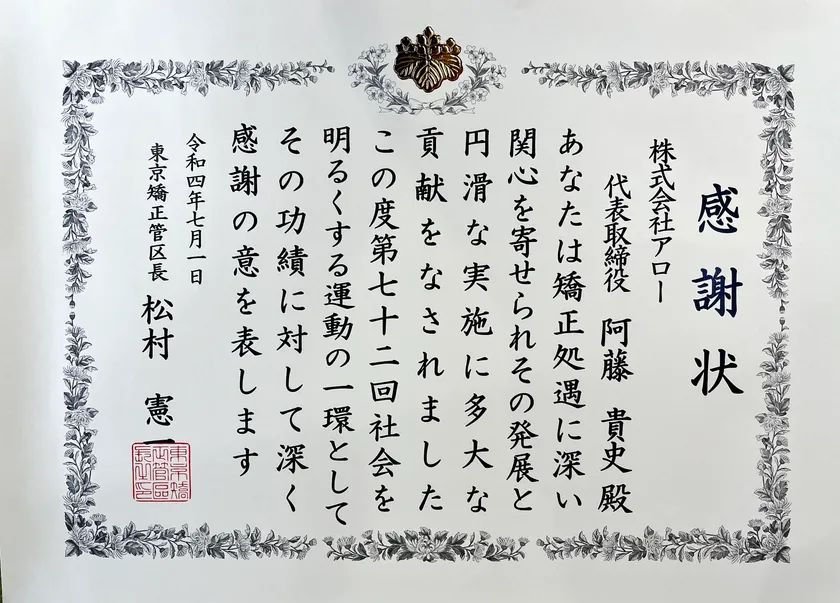 感謝状
株式会社アロー
代表取締役 阿藤 貴史 殿
あなたは矯正処遇に深い
関心を寄せられその発展と
円滑な実施に多大な
貢献をなされました
この度第七十二回社会を
明るくする運動の一環として
その功績に対して深く
感謝の意を表します
令和四年七月一日
東京矯正管区長 松村 憲一
東京矯
正管区
長之印